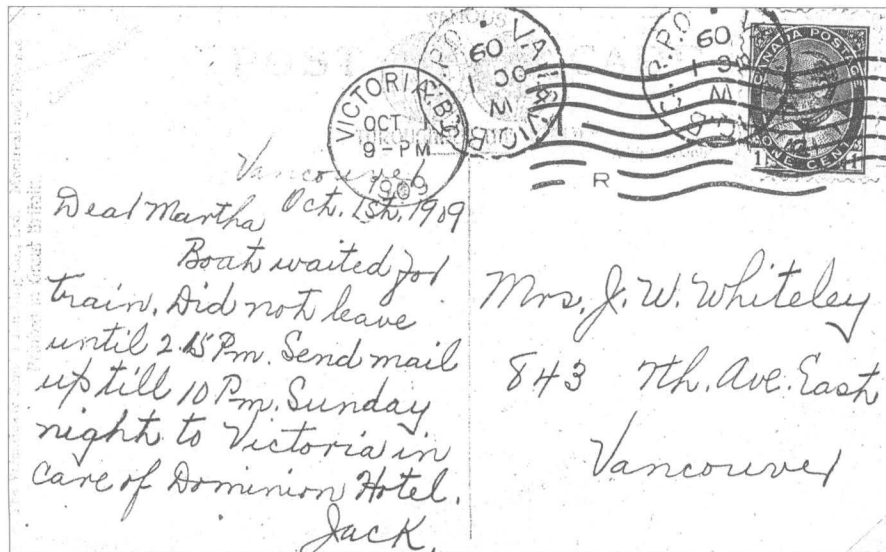 FAMOUS
VAN & VIC
R.P.O.
OC 1
09
M
B.C
R.P.O.
OC 1
09
M
VICTORIA, B.C.
OCT 1
9-PM
1909
R
CANADA POSTAGE
1 1
ONE CENT
Vancouver
Oct. 1st. 1909
Dear Martha
Boat waited for
train. Did not leave
until 2.15 Pm. Send mail
up till 10 Pm. Sunday
night to Victoria in
care of Dominion Hotel.
Jack.
Mrs. J. W. Whiteley
843 7th. Ave. East
Vancouver